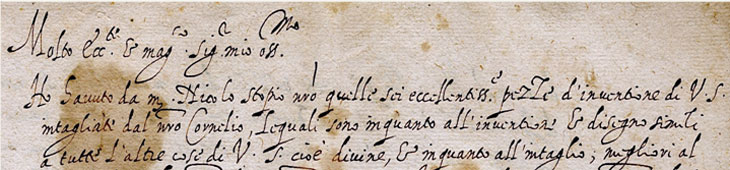 Molto Ecc.te & mag.co sig.r mio oss.mo
Ho havuto da m. Nicolo stopio nrõ quelle sei eccellentiss.e pezze d'inventione di V. S.
intagliate dal nrõ Cornelio, lequali sono inquanto all'inventione & disegno simili
a tutte l'altre cose di V. S. cioè divine, & inquanto all'intaglio, migliori al